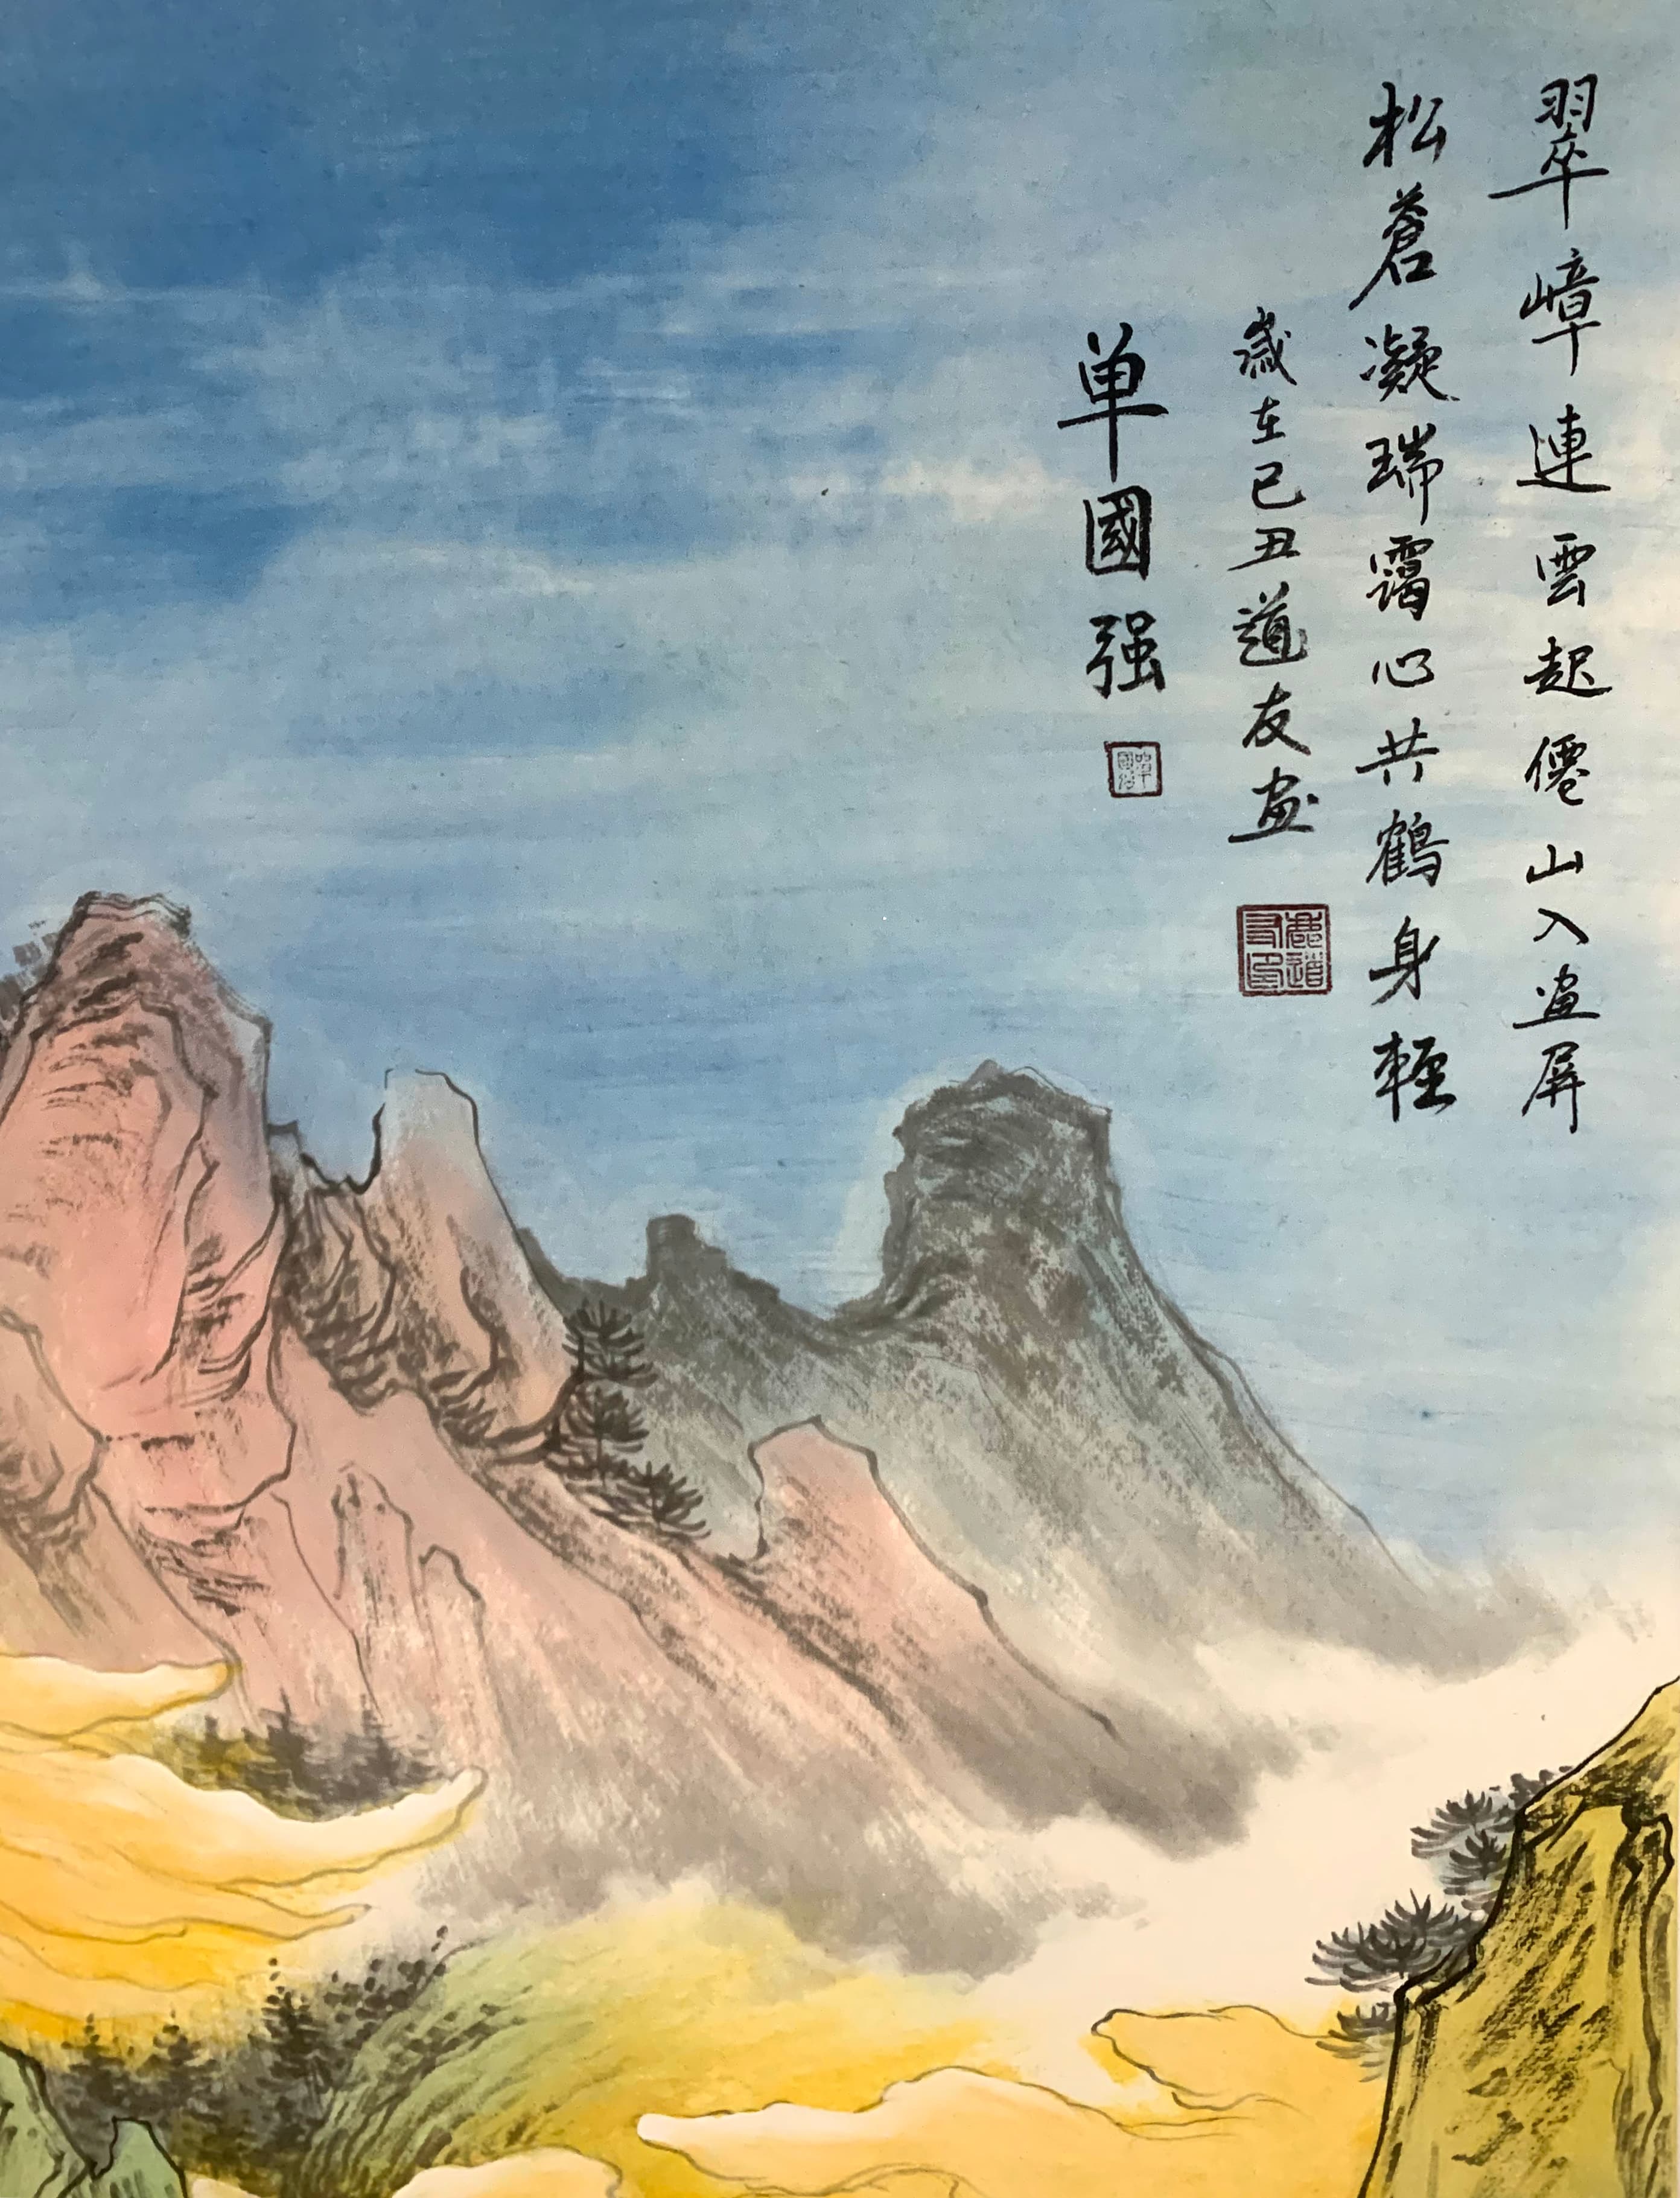 翠嶂連雲起僊山入畫屏
松蒼凝瑞靄心共鶴身輕
歲在己丑道友畫
单國强